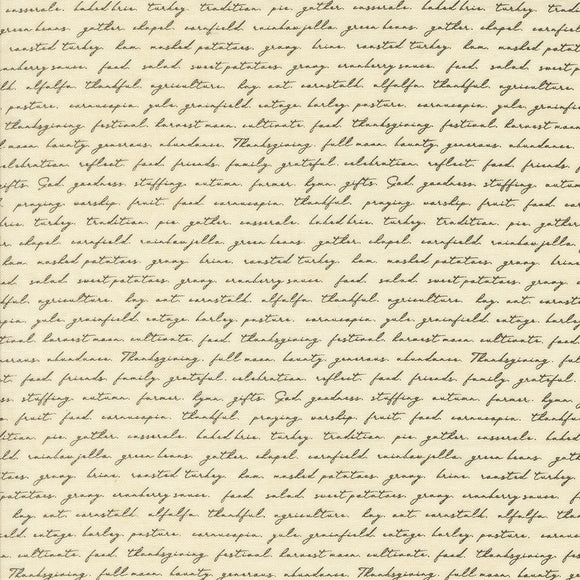 casserole. baked brie. turkey. tradition. pie. gather. casserole. baked brie. turkey. tra
green beans. gather. chapel. cornfield. rainbow jello. green beans. gather. chapel. cornfiel
roasted turkey. ham. mashed potatoes. gravy. brine. roasted turkey. ham. mashed potato
cranberry sauce. food. salad. sweet potatoes. gravy. cranberry sauce. food. salad. sweet p
alfalfa. thankful. agriculture. hay. oat. cornstalk. alfalfa. thankful. agriculture.
pasture. cornucopia. yule. grainfield. cotage. barley. pasture. cornucopia. yule. grainfie
Thanksgiving. festival. harvest moon. cultivate. food. Thanksgiving. festival. harvest moon
moon. bounty. generous. abundance. Thanksgiving. full moon. bounty. generous. abundance.
celebration. reflect. food. friends. family. grateful. celebration. reflect. food. friends.
gifts. God. goodness. stuffing. autumn. farmer. hymn. gifts. God. goodness. stuffing. autumn
praying. worship. fruit. food. cornucopia. thankful. praying. worship. fruit. food. co
brie. turkey. tradition. pie. gather. casserole. baked brie. turkey. tradition. pie. gather
chapel. cornfield. rainbow jello. green beans. gather. chapel. cornfield. rainbow jello.
ham. mashed potatoes. gravy. brine. roasted turkey. ham. mashed potatoes. gravy. brine
food. salad. sweet potatoes. gravy. cranberry sauce. food. salad. sweet potatoes. gravy.
agriculture. hay. oat. cornstalk. alfalfa. thankful. agriculture. hay. oat. cornst
yule. grainfield. cotage. barley. pasture. cornucopia. yule. grainfield. cotage. b
harvest moon. cultivate. food. Thanksgiving. festival. harvest moon. cultivate. food.
abundance. Thanksgiving. full moon. bounty. generous. abundance. Thanksgiving. fu
food. friends. family. grateful. celebration. reflect. food. friends. family. grateful.
stuffing. autumn. farmer. hymn. gifts. God. goodness. stuffing. autumn. farmer. hymn.
fruit. food. cornucopia. thankful. praying. worship. fruit. food. cornucopia. thankfu
pie. gather. casserole. baked brie. turkey. tradition. pie. gather. casserole. baked
rainbow jello. green beans. gather. chapel. cornfield. rainbow jello. green beans. gath
gravy. brine. roasted turkey. ham. mashed potatoes. gravy. brine. roasted turkey.
potatoes. gravy. cranberry sauce. food. salad. sweet potatoes. gravy. cranberry sauce. f
hay. oat. cornstalk. alfalfa. thankful. agriculture. hay. oat. cornstalk. alfalfa.
cotage. barley. pasture. cornucopia. yule. grainfield. cotage. barley. pasture. co
cultivate. food. Thanksgiving. festival. harvest moon. cultivate. food. Thanksgiv
Thanksgiving. full moon. bounty. generous. abundance. Thanksgiving. full moon.